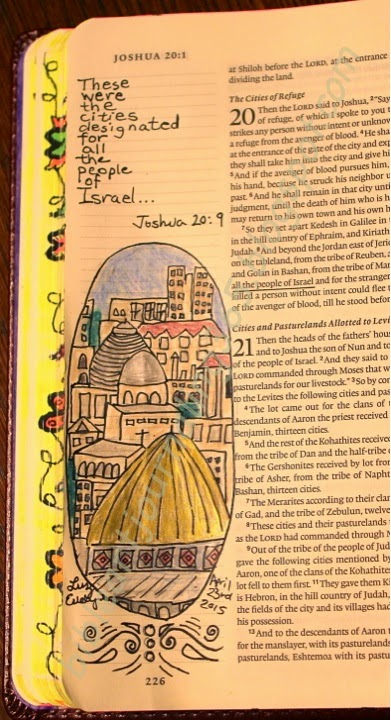 JOSHUA 20:1
These
were
the
cities
designated
for
all
the
people
of
Israel...
Joshua 20:9
Lucy
April
23rd
2015
226
at Shiloh before the LORD, at the entrance
dividing the land.
The Cities of Refuge
20 Then the LORD said to Joshua, 2 "Say
of refuge, of which I spoke to you
strikes any person without intent or unknow
a refuge from the avenger of blood. 4 He sha
at the entrance of the gate of the city and exp
they shall take him into the city and give hi
5 And if the avenger of blood pursues him,
his hand, because he struck his neighbor u
past. 6 And he shall remain in that city unt
judgment, until the death of him who is h
may return to his own town and his own h
7 So they set apart Kedesh in Galilee in
in the hill country of Ephraim, and Kiriath
Judah. 8 And beyond the Jordan east of Jeri
on the tableland, from the tribe of Reuben, a
and Golan in Bashan, from the tribe of Mar
all the people of Israel and for the stranger
killed a person without intent could flee t
of the avenger of blood, till he stood before
Cities and Pasturelands Allotted to Levi
21 Then the heads of the fathers' hous
and to Joshua the son of Nun and to
of the people of Israel. 2 And they said to
LORD commanded through Moses that w
pasturelands for our livestock." 3 So by co
to the Levites the following cities and pas
4 The lot came out for the clans of
descendants of Aaron the priest received
Benjamin, thirteen cities.
5 And the rest of the Kohathites received
from the tribe of Dan and the half-tribe
6 The Gershonites received by lot from
tribe of Asher, from the tribe of Napht
Bashan, thirteen cities.
7 The Merarites according to their clan
of Gad, and the tribe of Zebulun, twelve
8 These cities and their pasturelands
as the LORD had commanded through M
9 Out of the tribe of the people of Jud
gave the following cities mentioned by
Aaron, one of the clans of the Kohathites
lot fell to them first. 11 They gave them K
is Hebron, in the hill country of Judah,
the fields of the city and its villages had
his possession.
13 And to the descendants of Aaron t
for the manslayer, with its pasturelands
pasturelands, Eshtemoa with its pastu